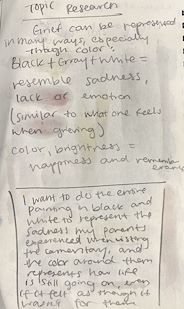 Topic Research
Grief can be represented
in many ways, especially
through color.
Black + Gray + White =
resemble sadness,
lack or emotion
(similar to what one feels
when grieving)
color, brightness =
happiness and remember
erance
I want to do the entire
painting in black and
white to represent the
sadness my parents
experienced when visiting
the cementary, and
the color around them
represents how life
is still going on, even
if it felt as though it
wasnt for them